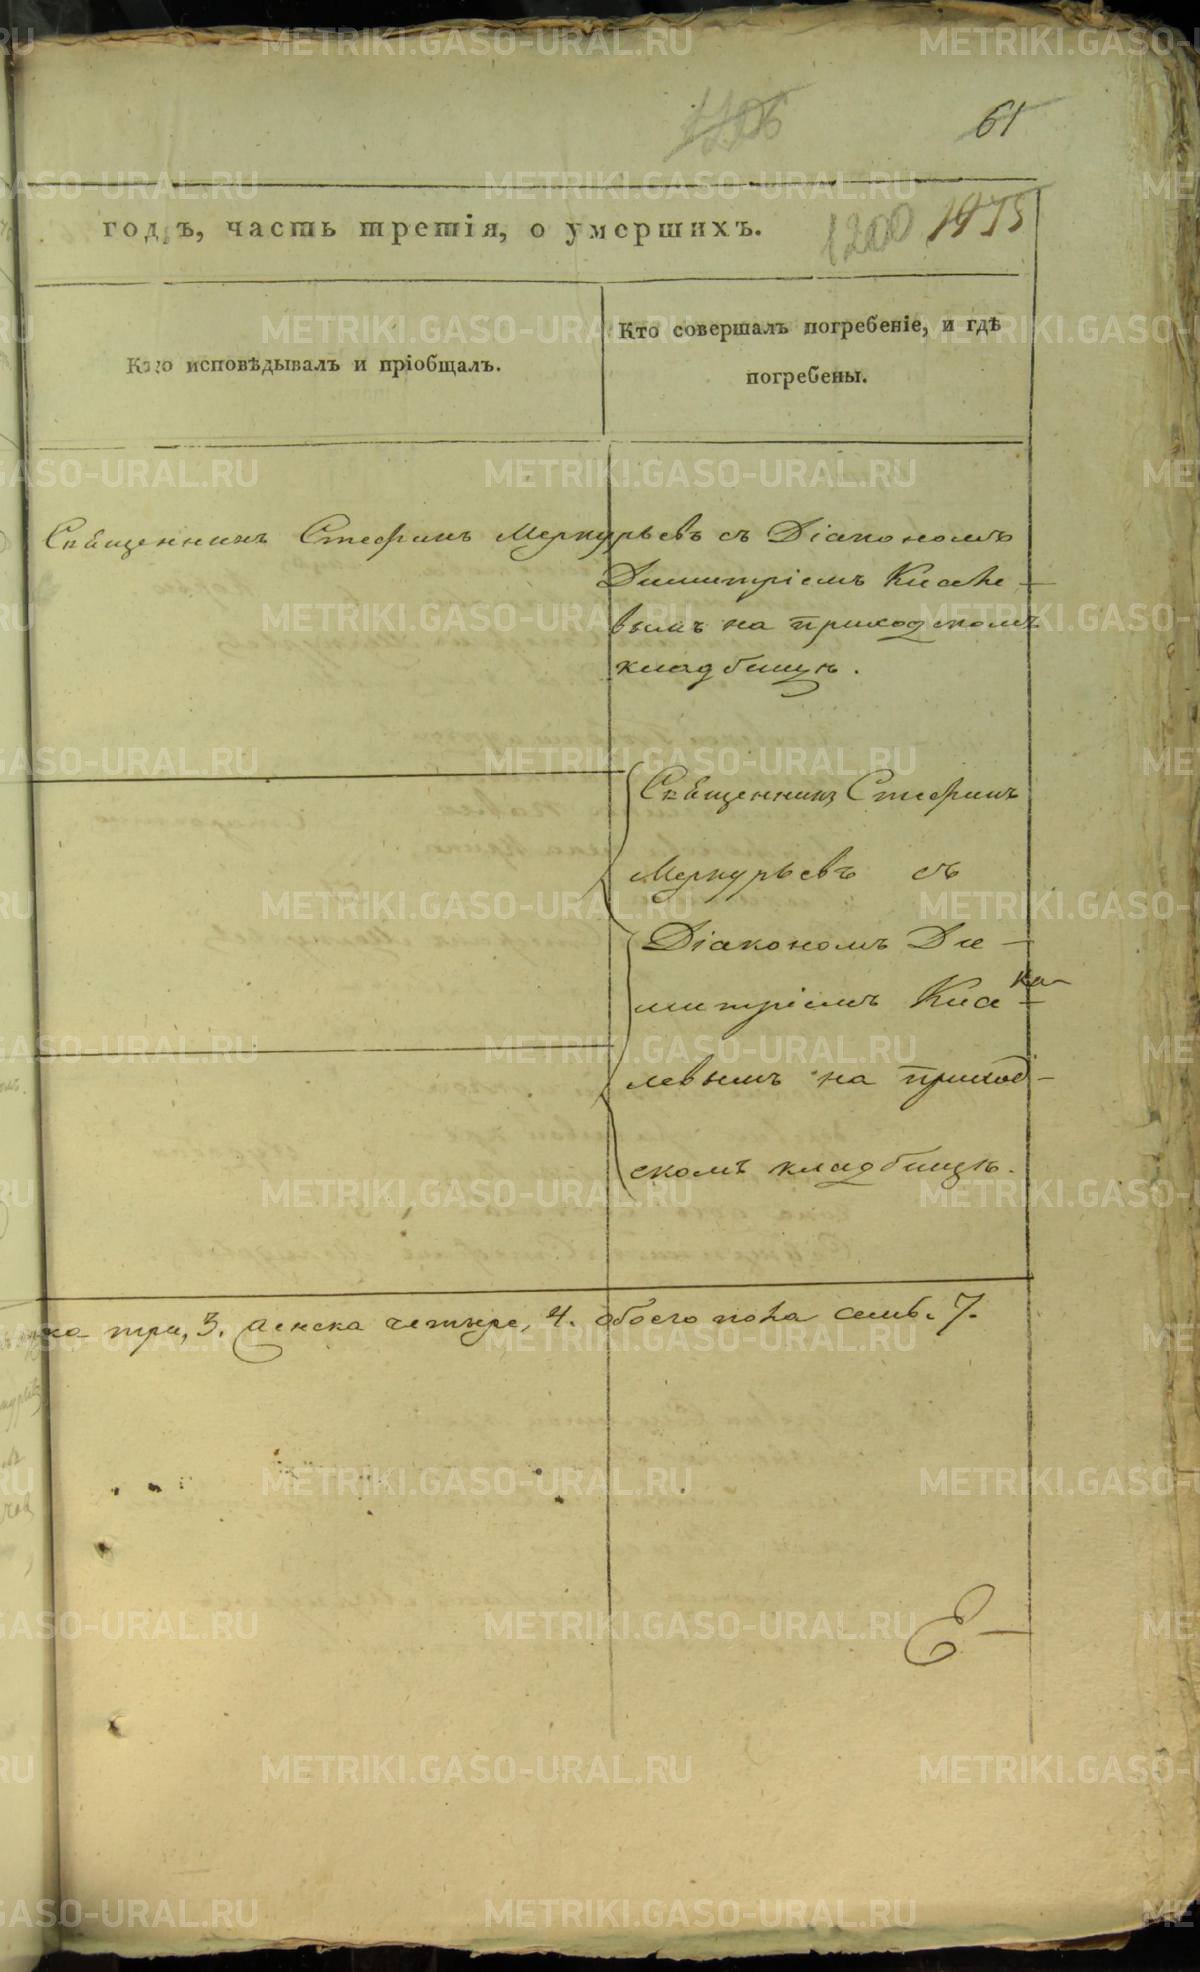 61
годъ, часть третія, о умершихъ.
1200 1975
Кто исповѣдывалъ и пріобщалъ.
Кто совершалъ погребеніе, и гдѣ
погребены.
Священникъ Стефанъ Меркурьевъ съ Діакономъ
Димитріемъ Кисле-
вымъ на приходскомъ
кладбищѣ.
Священникъ Стефанъ
Меркурьевъ съ
Діакономъ Ди-
митріемъ Кис
левымъ на приход-
скомъ кладбищѣ.
ка три, 3. женска четыре, 4. обоего пола семь. 7.
METRIKI.GASO-URAL.RU